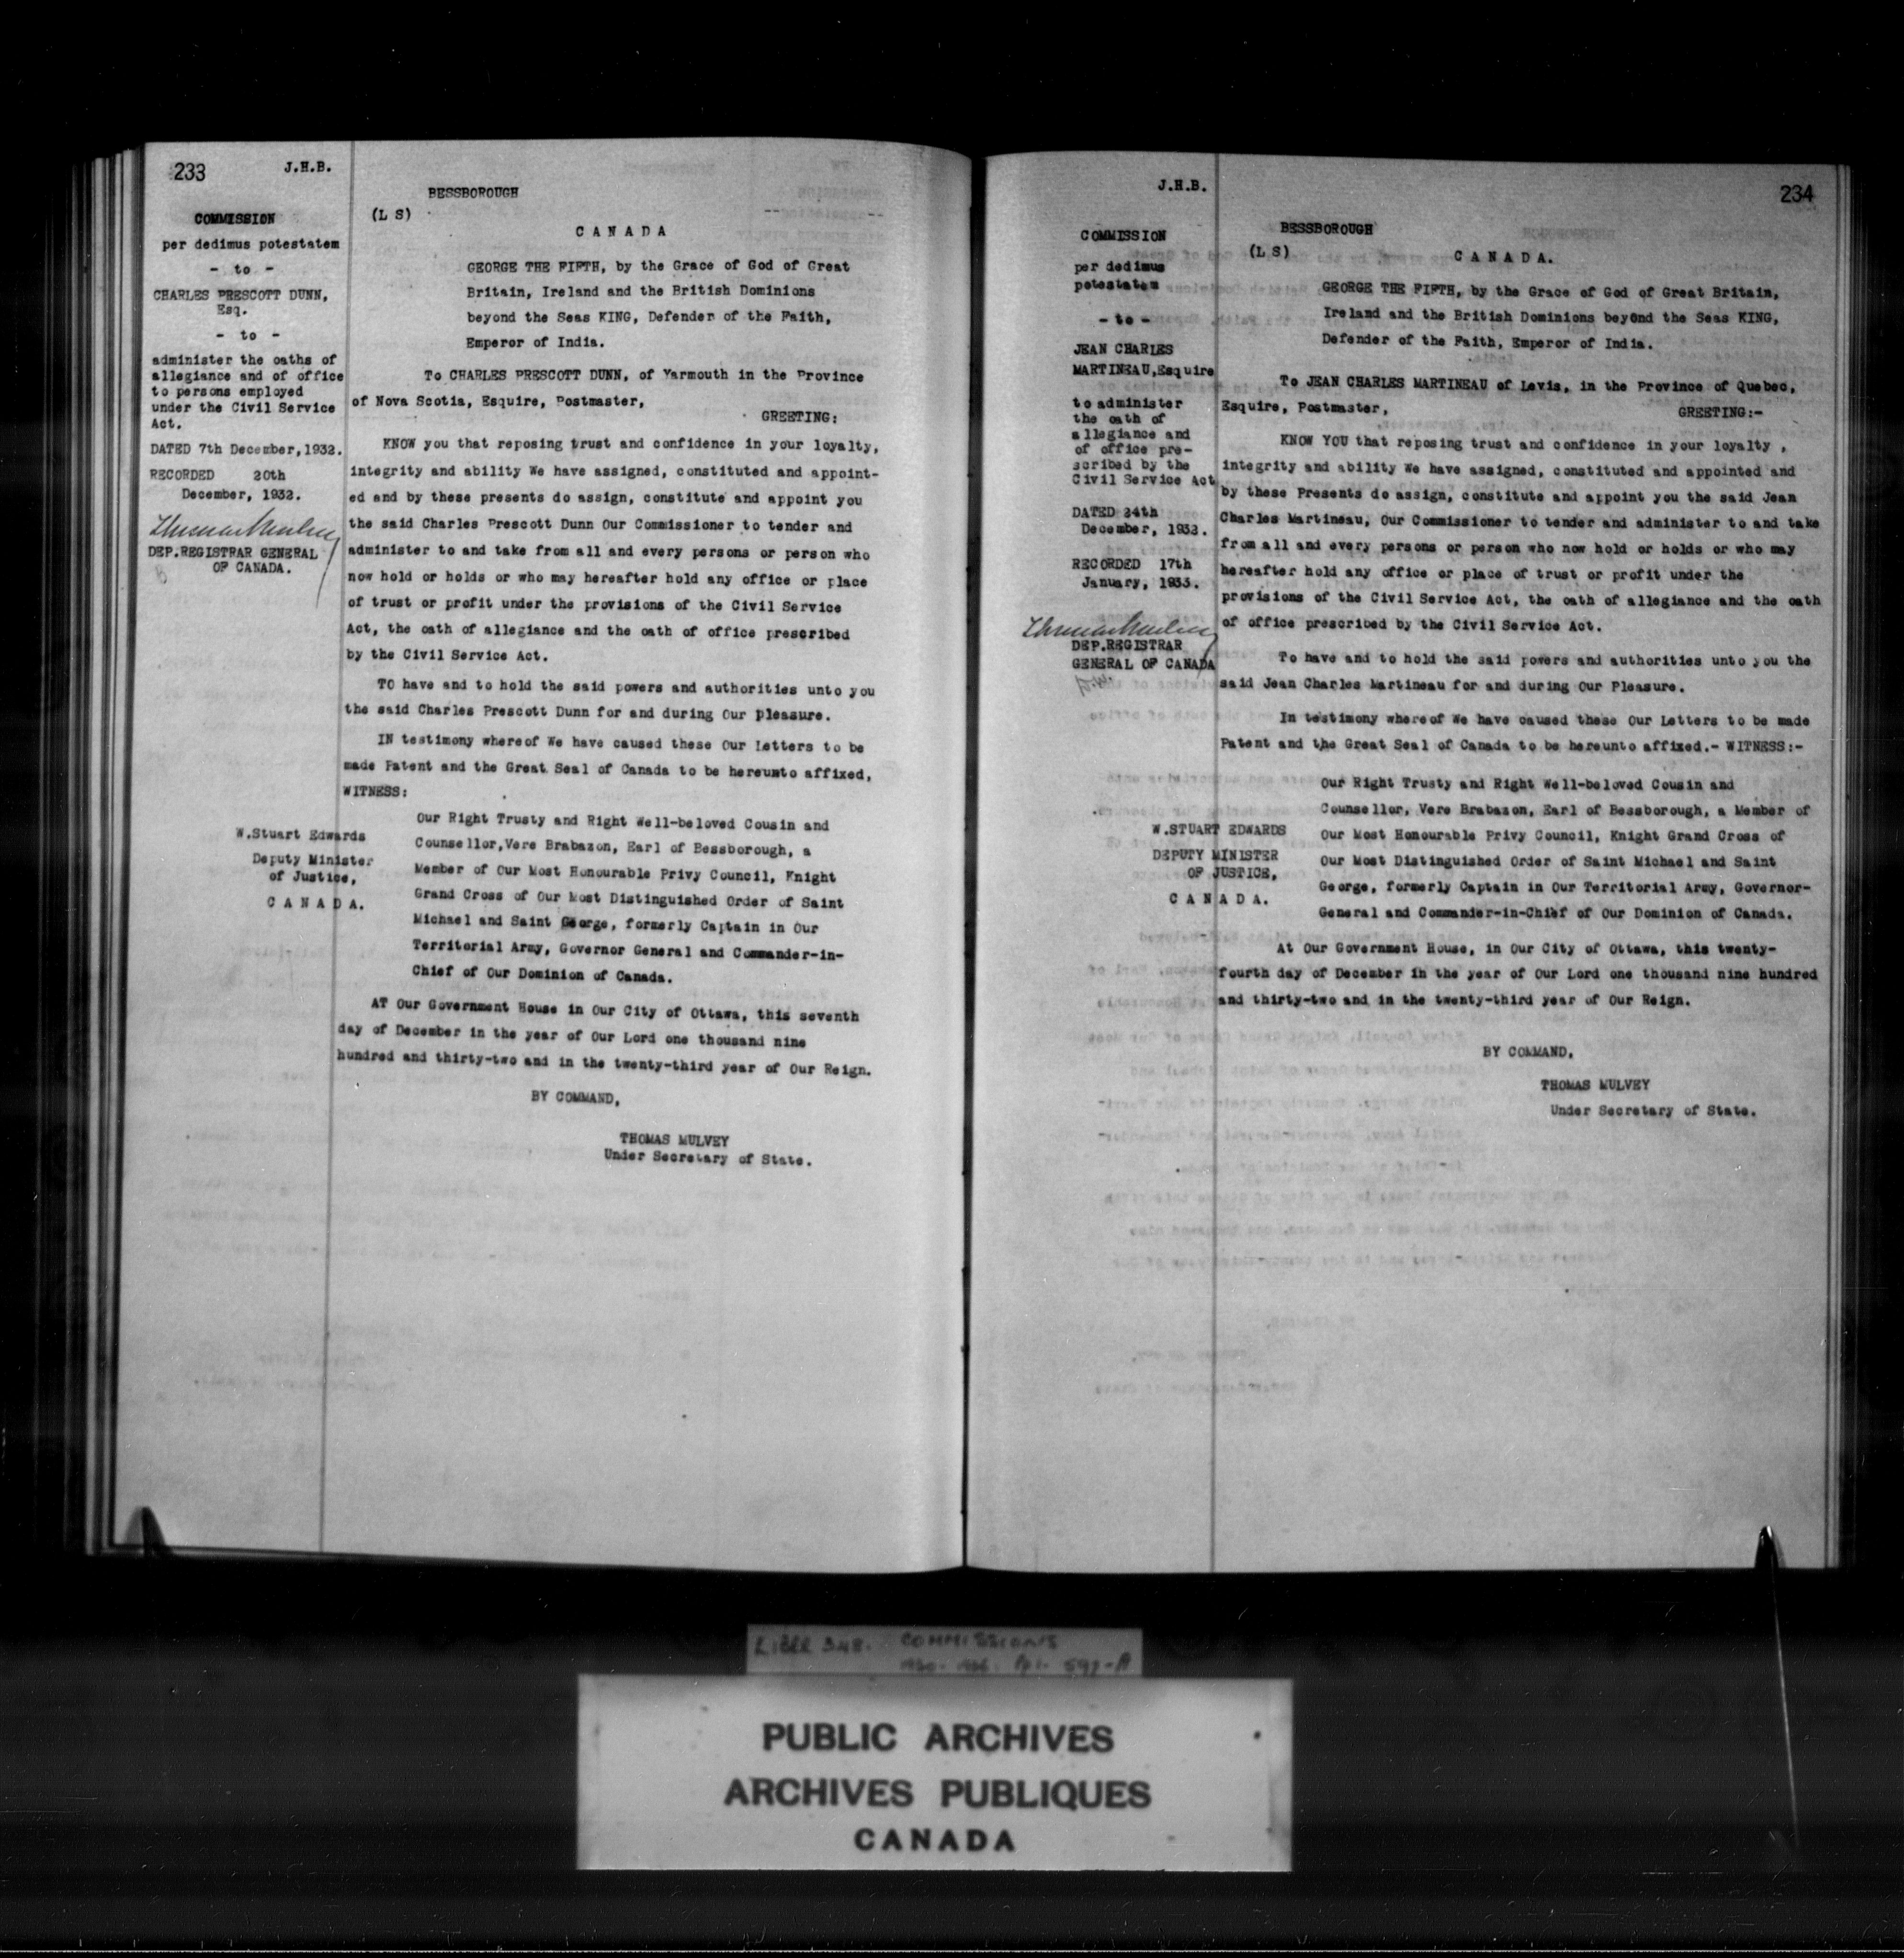 233
J.H.B.
COMMISSION
per dedimus potestatem
- to -
CHARLES PRESCOTT DUNN,
Esq.
- to -
administer the oaths of
allegiance and of office
to persons employed
under the Civil Service
Act.
DATED 7th December,1932.
RECORDED 20th
December, 1932.
DEP.REGISTRAR GENERAL
OF CANADA.
BESSBOROUGH
(L S)
C A N A D A
GEORGE THE FIFTH, by the Grace of God of Great
Britain, Ireland and the British Dominions
beyond the Seas KING, Defender of the Faith,
Emperor of India.
To CHARLES PRESCOTT DUNN, of Yarmouth in the Province
of Nova Scotia, Esquire, Postmaster,
GREETING:
KNOW you that reposing trust and confidence in your loyalty,
integrity and ability We have assigned, constituted and appoint-
ed and by these presents do assign, constitute and appoint you
the said Charles Prescott Dunn Our Commissioner to tender and
administer to and take from all and every persons or person who
now hold or holds or who may hereafter hold any office or place
of trust or profit under the provisions of the Civil Service
Act, the oath of allegiance and the oath of office prescribed
by the Civil Service Act.
TO have and to hold the said powers and authorities unto you
the said Charles Prescott Dunn for and during Our pleasure.
IN testimony whereof We have caused these Our Letters to be
made Patent and the Great Seal of Canada to be hereunto affixed,
WITNESS:
W.Stuart Edwards
Deputy Minister
of Justice,
C A N A D A.
Our Right Trusty and Right Well-beloved Cousin and
Counsellor,Vere Brabazon, Earl of Bessborough, a
Member of Our Most Honourable Privy Council, Knight
Grand Cross of Our Most Distinguished Order of Saint
Michael and Saint George, formerly Captain in Our
Territorial Army, Governor General and Commander-in-
Chief of Our Dominion of Canada.
AT Our Government House in Our City of Ottawa, this seventh
day of December in the year of Our Lord one thousand nine
hundred and thirty-two and in the twenty-third year of Our Reign.
BY COMMAND,
THOMAS MULVEY
Under Secretary of State.
J.H.B.
234
COMMISSION
per dedimus
potestatem
- to -
JEAN CHARLES
MARTINEAU,Esquire
to administer
the oath of
allegiance and
of office pre-
scribed by the
Civil Service Act
DATED 24th
December, 1932.
RECORDED 17th
January, 1933.
DEP.REGISTRAR
GENERAL OF CANADA
BESSBOROUGH
(L S)
C A N A D A.
GEORGE THE FIFTH, by the Grace of God of Great Britain,
Ireland and the British Dominions beyond the Seas KING,
Defender of the Faith, Emperor of India.
To JEAN CHARLES MARTINEAU of Levis, in the Province of Quebec,
Esquire, Postmaster,
GREETING:-
KNOW YOU that reposing trust and confidence in your loyalty ,
integrity and ability We have assigned, constituted and appointed and
by these Presents do assign, constitute and appoint you the said Jean
Charles Martineau, Our Commissioner to tender and administer to and take
from all and every persons or person who now hold or holds or who may
hereafter hold any office or place of trust or profit under the
provisions of the Civil Service Act, the oath of allegiance and the oath
of office prescribed by the Civil Service Act.
To have and to hold the said powers and authorities unto you the
said Jean Charles Martineau for and during Our Pleasure.
In testimony whereof We have caused these Our Letters to be made
Patent and the Great Seal of Canada to be hereunto affixed.- WITNESS:-
W.STUART EDWARDS
DEPUTY MINISTER
OF JUSTICE,
C A N A D A.
Our Right Trusty and Right Well-beloved Cousin and
Counsellor, Vere Brabazon, Earl of Bessborough, a Member of
Our Most Honourable Privy Council, Knight Grand Cross of
Our Most Distinguished Order of Saint Michael and Saint
George, formerly Captain in Our Territorial Army, Governor-
General and Commander-in-Chief of Our Dominion of Canada.
At Our Government House, in Our City of Ottawa, this twenty-
fourth day of December in the year of Our Lord one thousand nine hundred
and thirty-two and in the twenty-third year of Our Reign.
BY COMMAND,
THOMAS MULVEY
Under Secretary of State.
LIBER 348. COMMISSIONS
PUBLIC ARCHIVES
ARCHIVES PUBLIQUES
CANADA